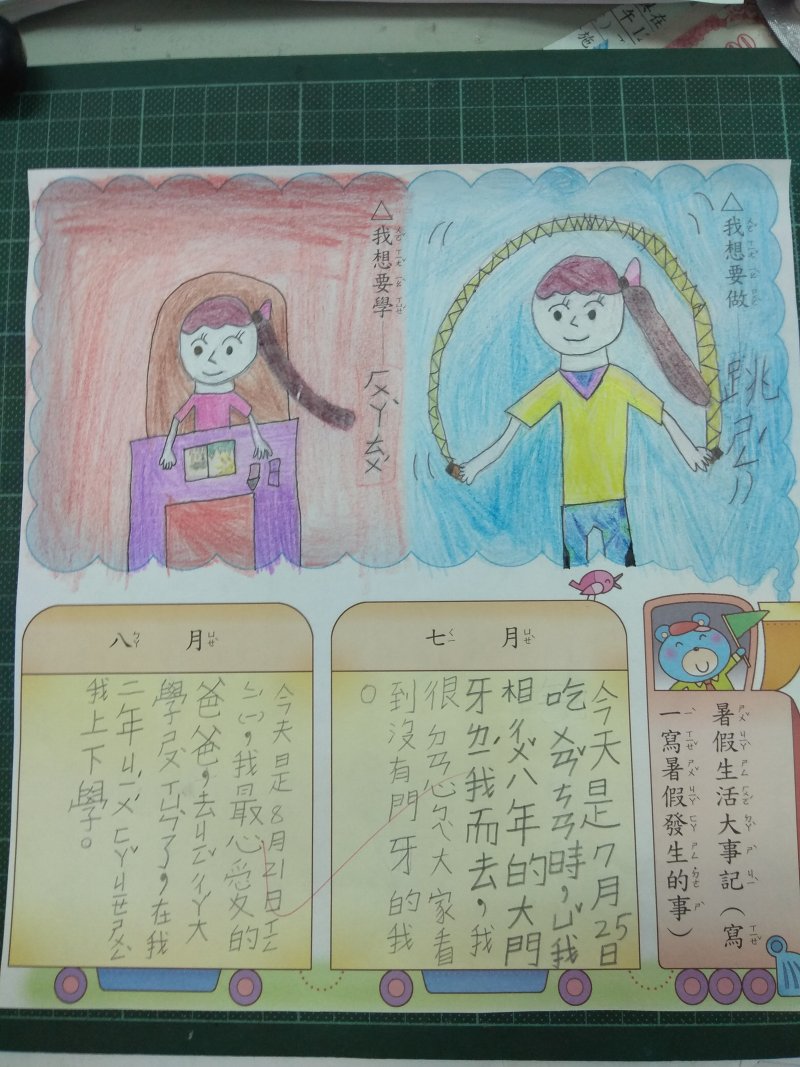 △我想要做
跳ㄕㄥˊ
△我想要學
暑假生活大事記（寫
一寫暑假發生的事）
七月
今天是7月25日
吃ㄨㄢˇㄘㄢ時，ㄩˇ我
相ㄔㄨˇ八年的大門
牙ㄌㄧˊ我而去，我
很ㄉㄢ心ㄅㄟˋ大家看
到沒有門牙的我
。
八月
今天是8月21日
，我最心愛的
爸爸，去ㄐㄧㄠㄔㄚ大
學ㄕㄡˋㄒㄩㄣˋ了，在我
二年ㄐㄧˊㄨˊㄈㄚˇㄐㄧㄝㄕㄨㄥˋ
我上下學。